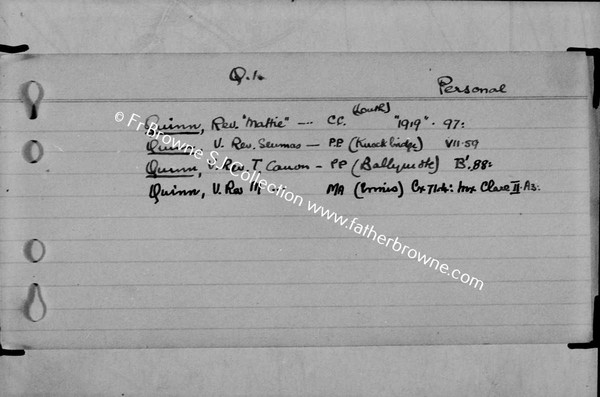 Q.1.
Personal
Quinn, Rev. "Mattie" --- C.C. (Louth) "1919". 97:
Quinn, V. Rev. Seumas — P.P. (Knockbridge) VII.59
Quinn, V. Rev. T Canon - P.P (Ballymote) B'.88:
Quinn, V. Rev MA (Ennis) Clare II.A3:
© Fr Browne S.J. Collection www.fatherbrowne.com